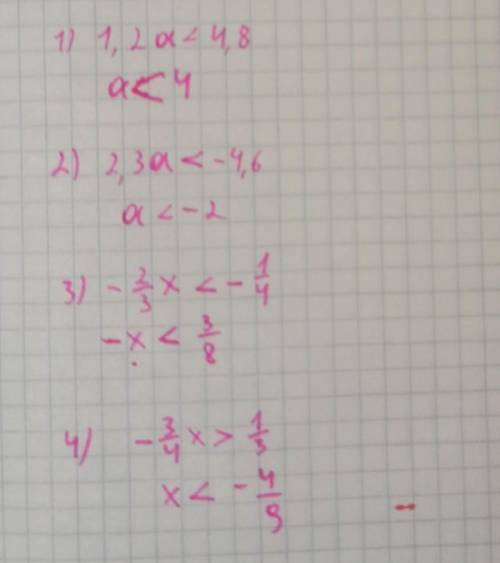 1) 1,2a < 4,8
a < 4
2) 2,3a < -4,6
a < -2
3) - 2/3 x < - 1/4
-x < 3/8
4) - 3/4 x > 1/3
x < - 4/9